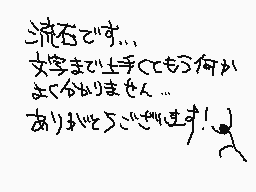 流石です...
文字まで上手くてもう何か
よく分かりません...
ありがとうございます!